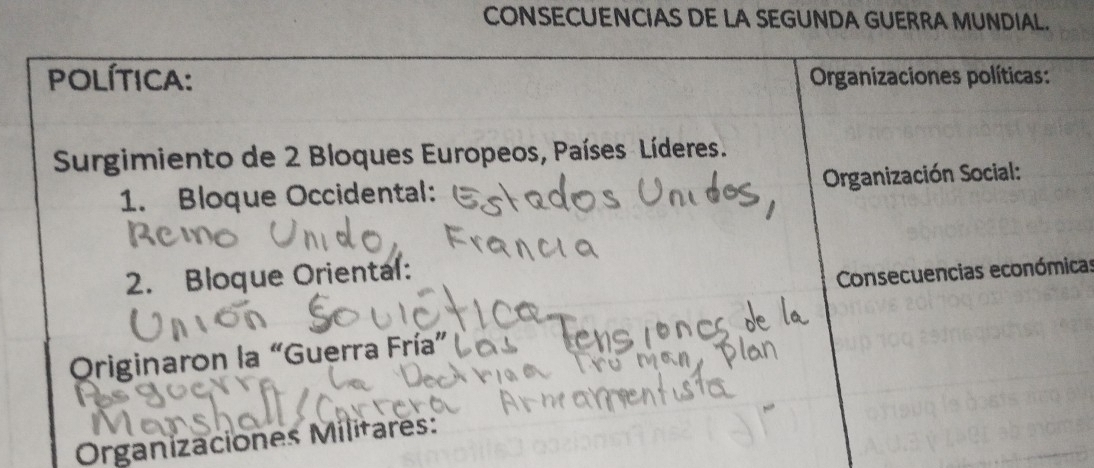 CONSECUENCIAS DE LA SEGUNDA GUERRA MUNDIAL.
POLÍTICA:
Surgimiento de 2 Bloques Europeos, Países Líderes.
1. Bloque Occidental: Estados Unidos,
Reino Unido, Francia
2. Bloque Oriental:
Unión Soviética
Originaron la “Guerra Fría” Las Tensiones de la
Posguerra, la Doctrina Truman, Plan
Marshall, Carrera Armamentista
Organizaciones Militares:
Organizaciones políticas:
Organización Social:
Consecuencias económicas